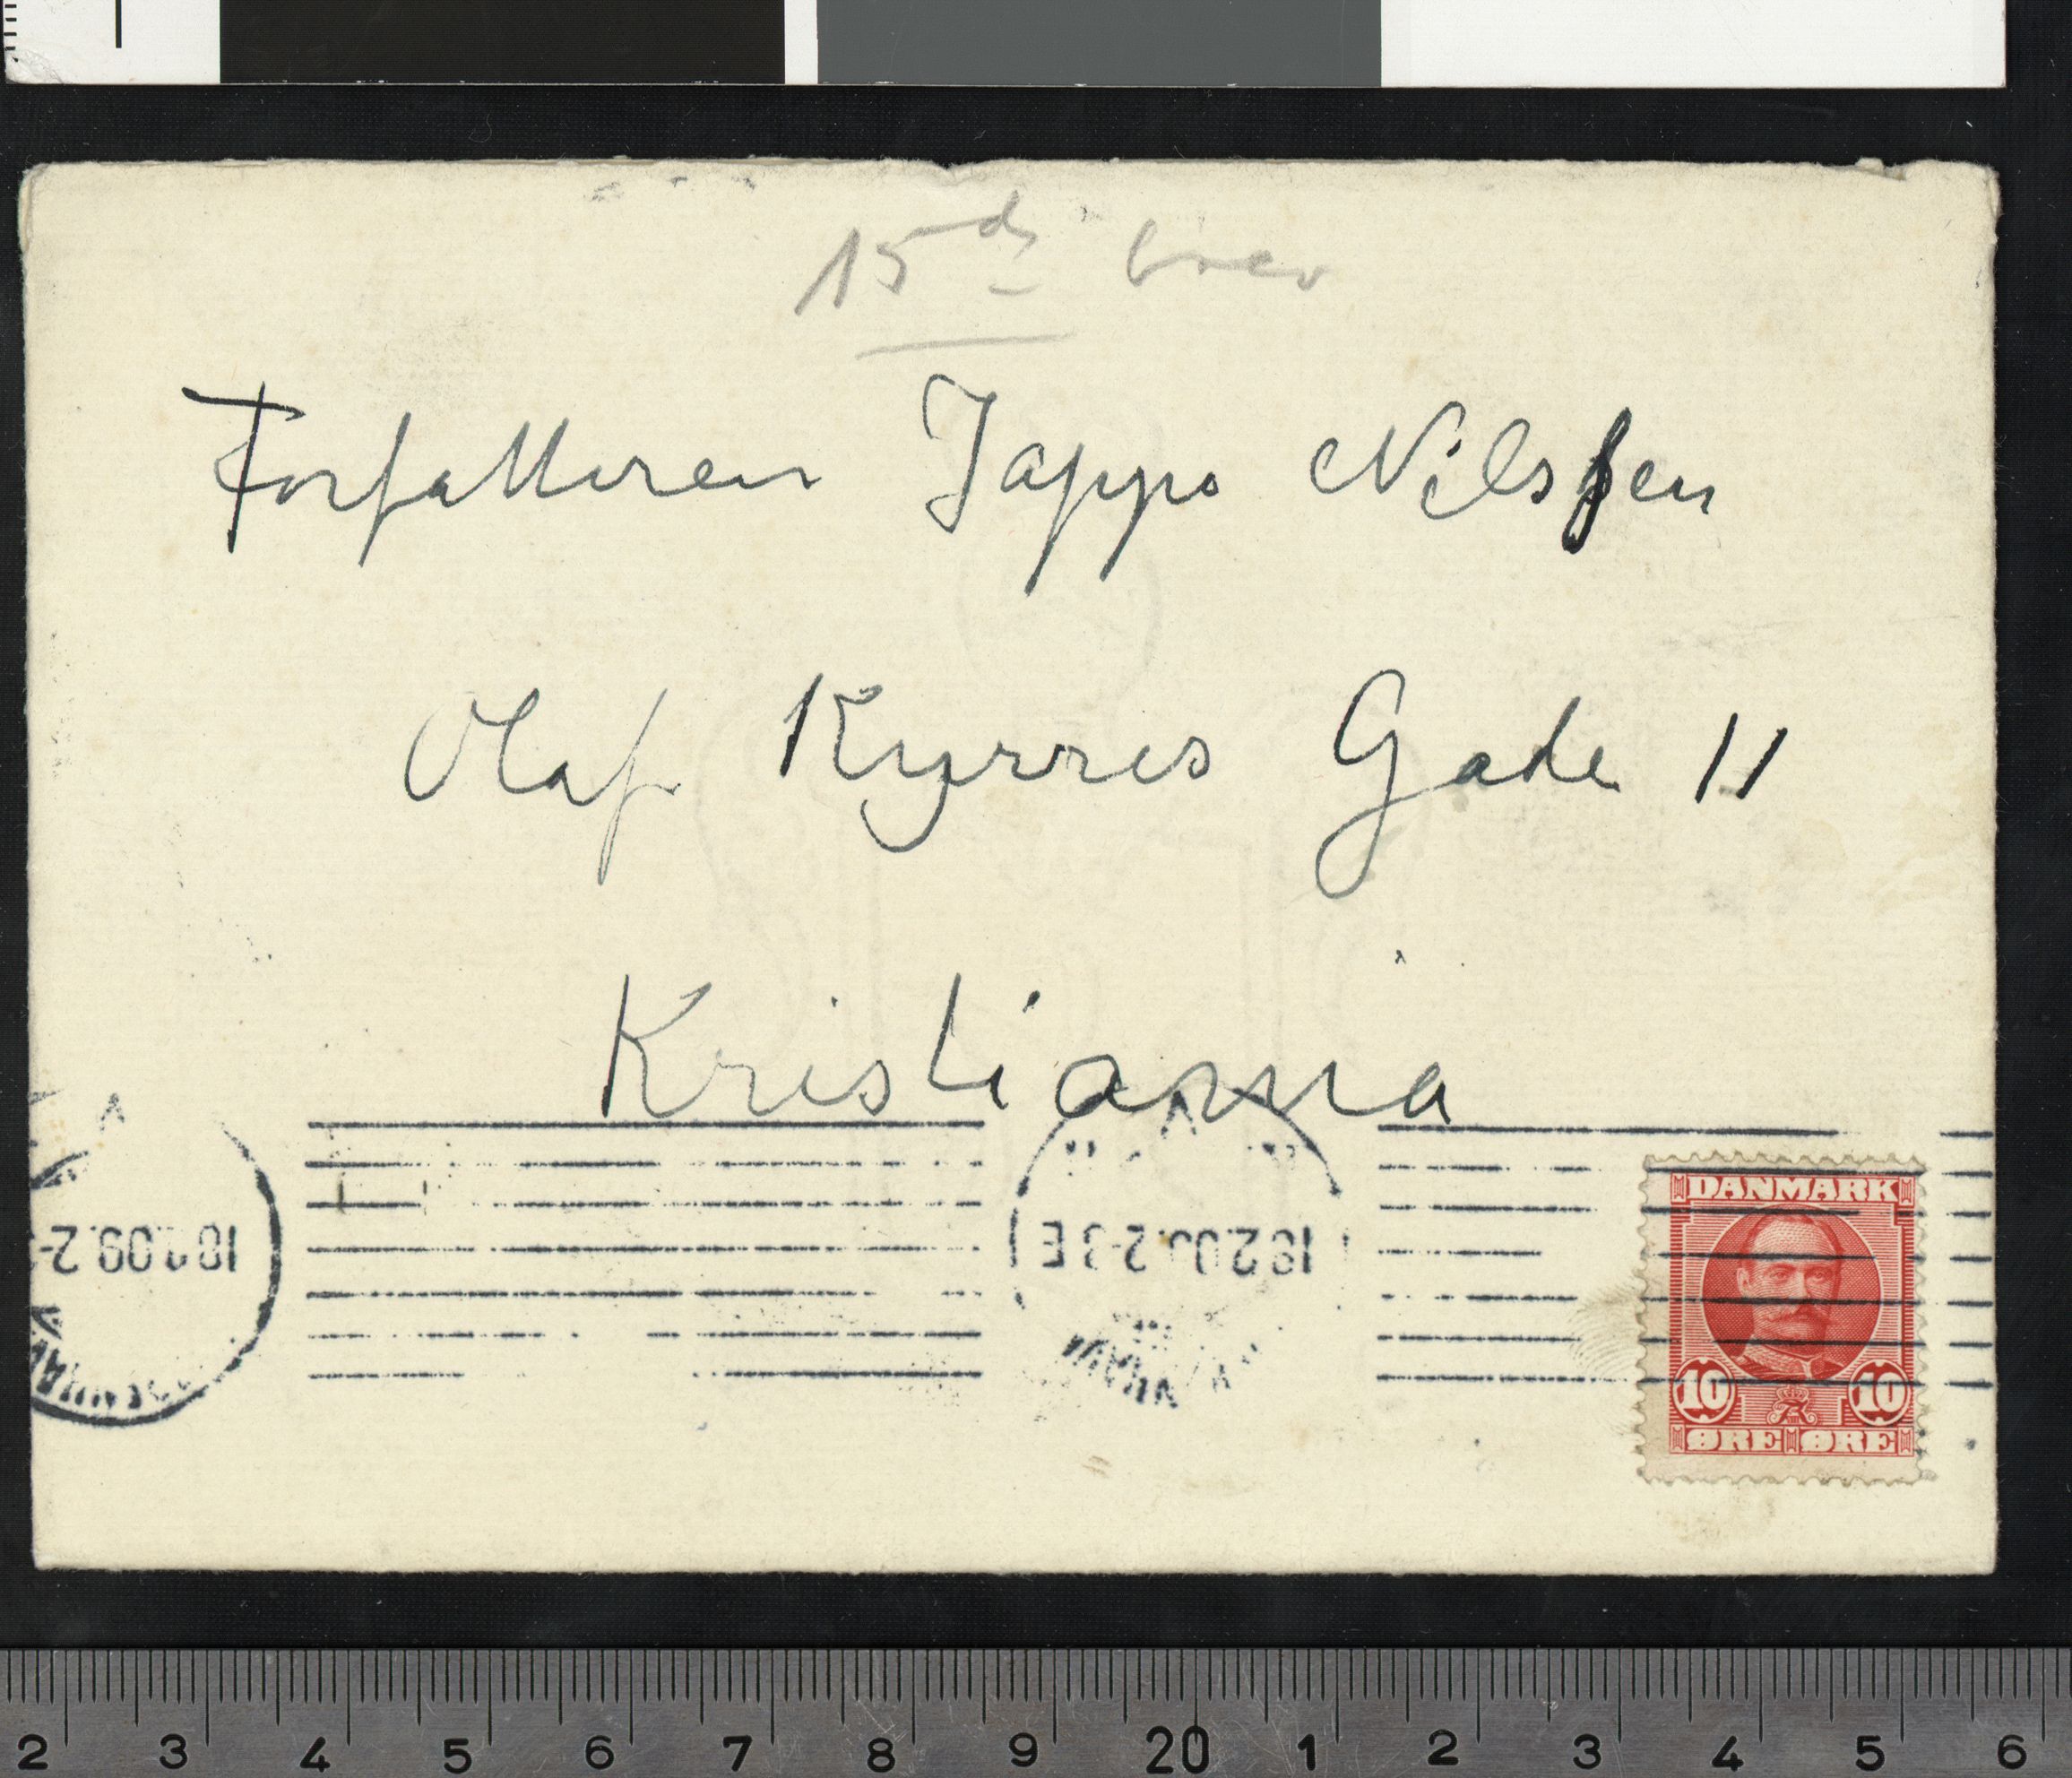 15de brev
Forfatteren Jappe Nilssen
Olaf Kyrres Gade 11
Kristiania
DANMARK
10 10
ØRE ØRE
2 3 4 5 6 7 8 9 20 1 2 3 4 5 6